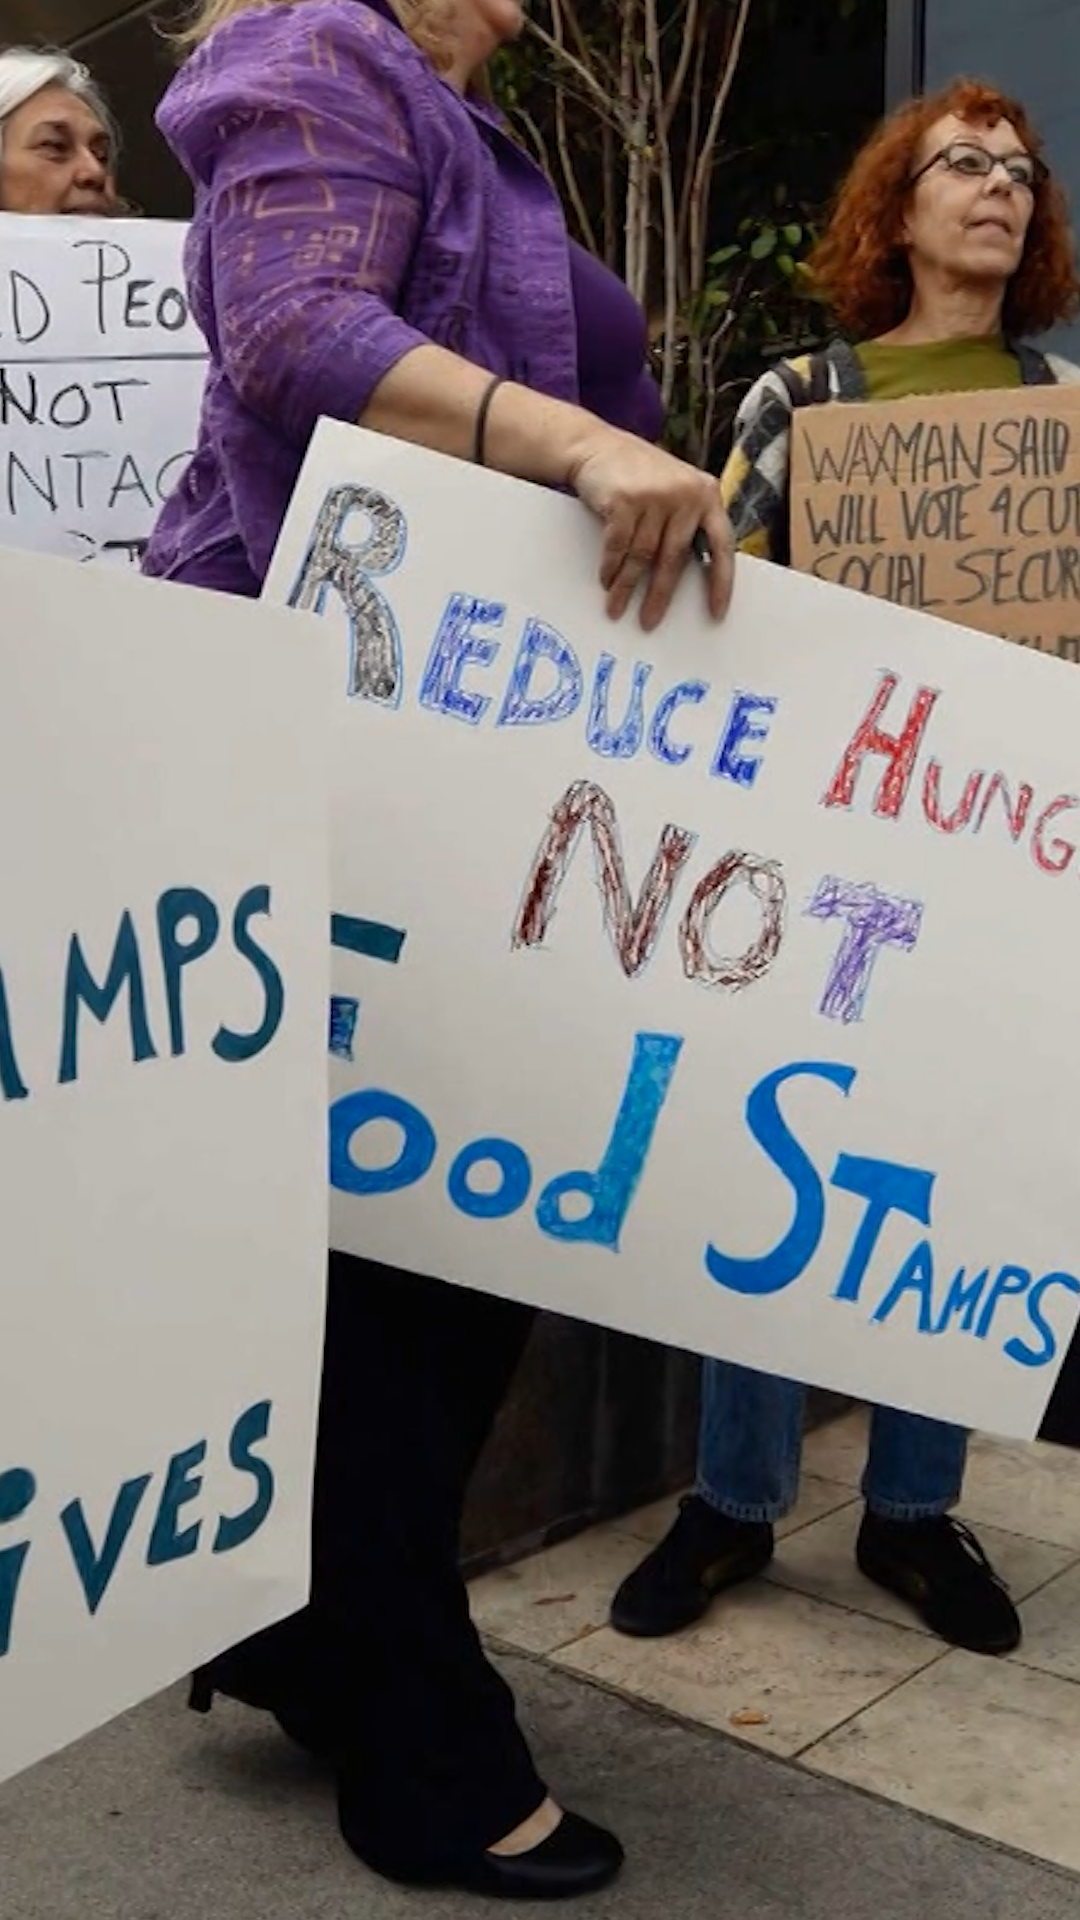 PEO
NOT
NTAC
WAXMAN SAID
WILL VOTE 4 CUT
SOCIAL SECUR
REDUCE HUNG
NOT
Food STAMPS
AMPS
iVES